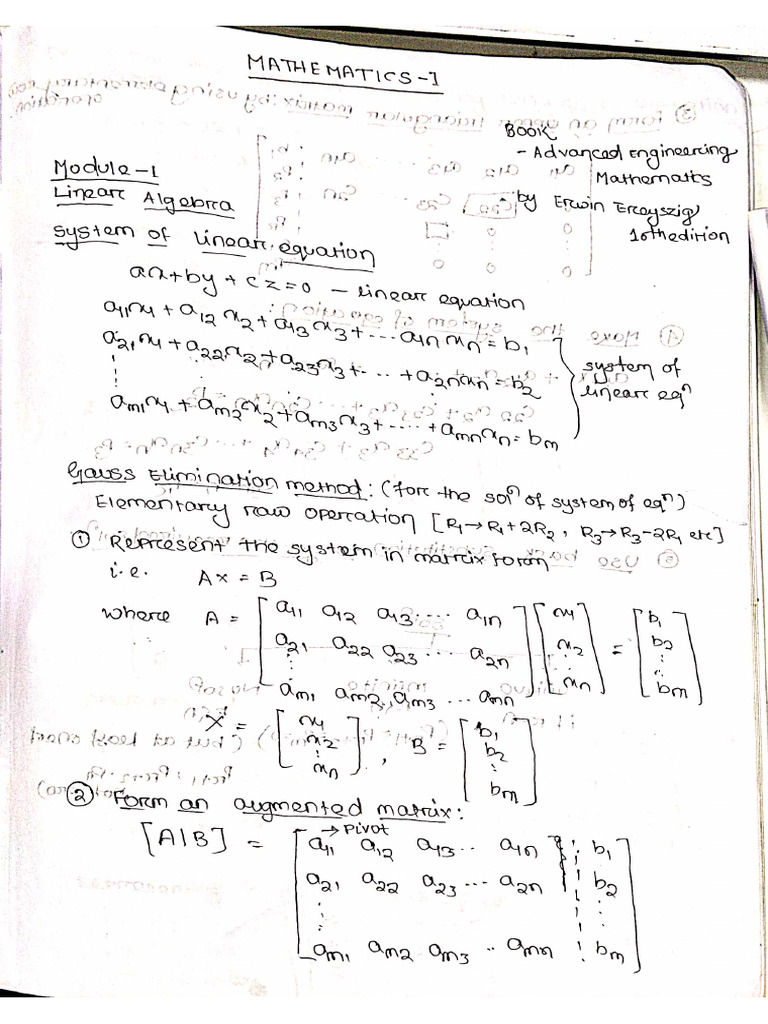 MATHEMATICS-I
BOOK
- Advanced Engineering
Mathematics
by Erwin Ereyszig
10th edition
Module-1
Linear Algebra
System of linear equation
ax+by+cz=0 - linear equation
a₁₁x₁ + a₁₂x₂ + a₁₃x₃ + ... a₁ₙxₙ = b₁
a₂₁x₁ + a₂₂x₂ + a₂₃x₃ + ... + a₂ₙxₙ = b₂
⋮
aₘ₁x₁ + aₘ₂x₂ + aₘ₃x₃ + .... + aₘₙxₙ = bₘ
system of
linear eqⁿ
Gauss Elimination method: (for the solⁿ of system of eqⁿ)
Elementary row operation [R₁→R₁+2R₂, R₃→R₃-2R₁ etc]
① Represent the system in matrix form
i.e. AX = B
where A = [a₁₁ a₁₂ a₁₃ .... a₁ₙ] [x₁] = [b₁]
[a₂₁ a₂₂ a₂₃ ... a₂ₙ] [x₂] [b₂]
⋮ ⋮ ⋮
[aₘ₁ aₘ₂, aₘ₃ ... aₘₙ] [xₙ] [bₘ]
X = [x₁ x₂ ⋮ xₙ], B = [b₁ b₂ ⋮ bₘ]
② Form an augmented matrix:
→ Pivot
[A|B] = [a₁₁ a₁₂ a₁₃ .. a₁ₙ ¦ b₁]
[a₂₁ a₂₂ a₂₃ ... a₂ₙ ¦ b₂]
⋮ ¦ ⋮
[aₘ₁ aₘ₂ aₘ₃ .. aₘₙ ¦ bₘ]